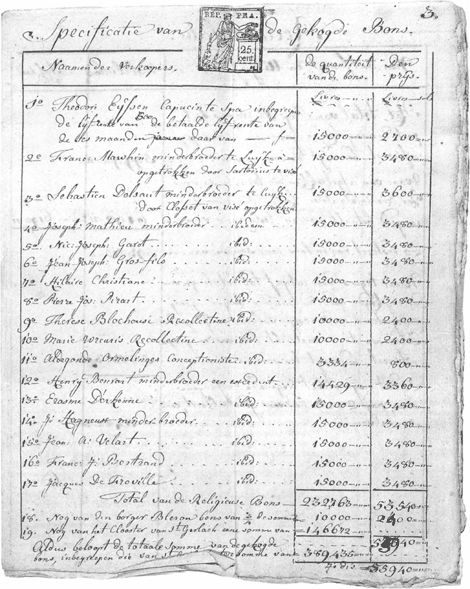 3.
Specificatie van de Gekogde Bons.
REP. FRA.
25 cent
Naamen der Verkoopers. de quantiteit van de bons. Den prijs.
Livres Livres
1o Theodon Eyssen Capucin te Spa inbegreepen
de lijfrente van de betaalde lijfrente van
de ses maanden daar van 15000 2700
2o Franc: Mawhin minderbroeder te Luyk
opgetrokken door Sartorius te visé 15000 3480
3o Sebastien minderbroeder te Luyk
door Closset van visé opgetrokken 15000 3600
4o Joseph: Mathieu minderbroeder ibidem 15000 3480
5o Nic: Joseph: Garot ibid: 15000 3480
6o Jean Joseph: Gros-fils ibid: 15000 3480
7o Hilaire Christiane ibid: 15000 3480
8o Pierre Jos: ibid: 15000 3480
9o Therese Blochouse Recollectine ibid: 10000 2400
10o Marie Recollectine ibid: 10000 2400
11o Aldegonde Ormelinges Conceptioniste ibid: 3334 800
12o Henry Bonvart minderbroeder een 14429 3360
13o Erasme ibid: 15000 3480
14o J: Hogneust minderbroeder ibid: 15000 3480
15o Jean A: Velart ibid: 15000 3480
16o Franc: J: Bertrand ibid: 15000 3480
17o Jacques de Froville ibid: 15000 3480
Total van de Religieuse Bons 232763 53540
18. Nog van den borger Bleron bons van de somme 10000 2400
19. Nog van het Clooster van St Gerlach eene somme van 146672
Aldus beloopt de totaale somme van de gekogde
bons, inbegreepen die van St 389435
55940